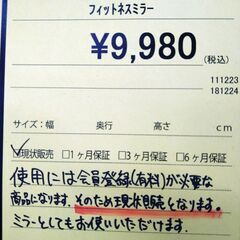 フィットネスミラー
¥9,980(税込)
111223
181224
サイズ：幅 奥行 高さ cm
☑現状販売 □1ヶ月保証 □3ヶ月保証 □6ヶ月保証
使用には会員登録(有料)が必要な
商品になります。そのため現状販売となります。
ミラーとしてもお使いいただけます。